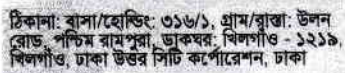 ঠিকানা: বাসা/হোল্ডিং: ৩১৬/১, গ্রাম/রাস্তা: উলন
রোড, পশ্চিম রামপুরা, ডাকঘর: খিলগাঁও - ১২১৯,
খিলগাঁও, ঢাকা উত্তর সিটি কর্পোরেশন, ঢাকা